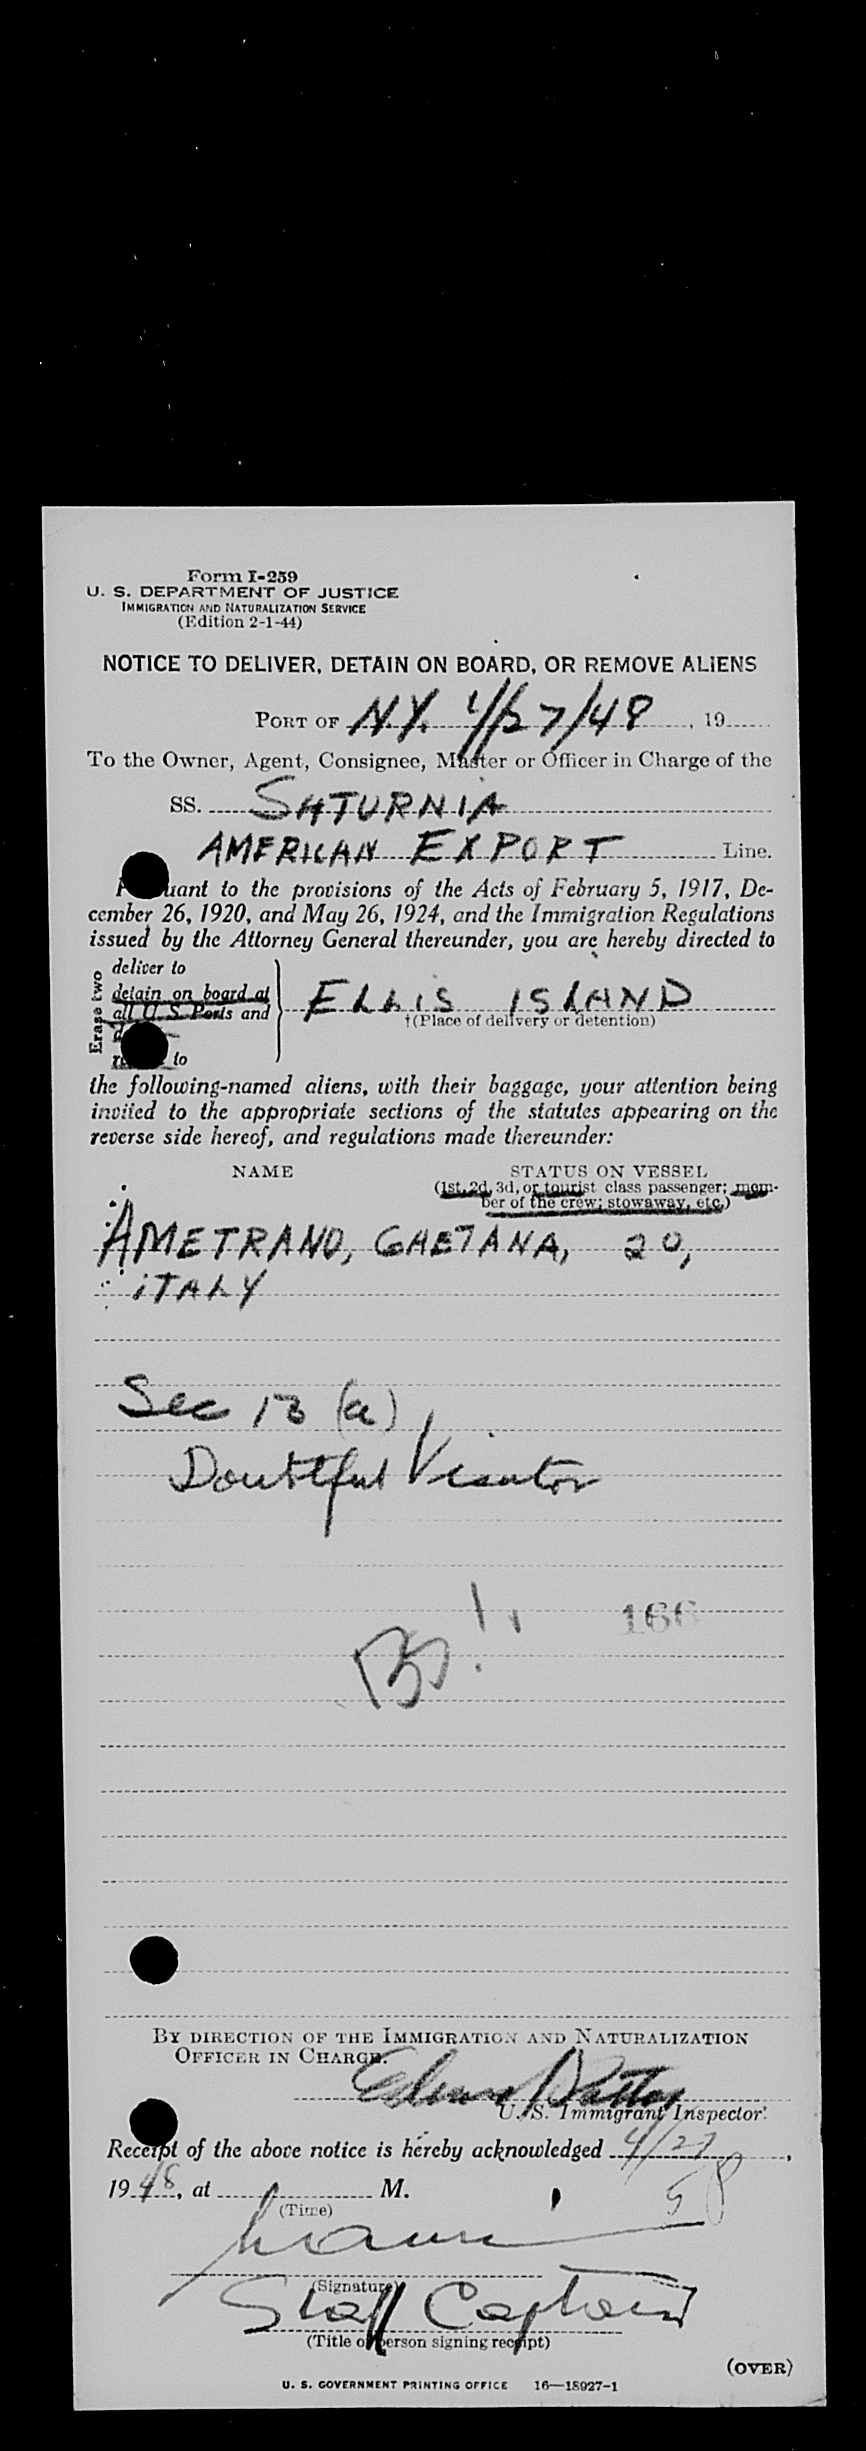 Form I-259
U. S. DEPARTMENT OF JUSTICE
IMMIGRATION AND NATURALIZATION SERVICE
(Edition 2-1-44)
NOTICE TO DELIVER, DETAIN ON BOARD, OR REMOVE ALIENS
PORT OF N.Y. 4/27/48, 19
To the Owner, Agent, Consignee, Master or Officer in Charge of the
SS. SATURNIA
AMERICAN EXPORT Line.
uant to the provisions of the Acts of February 5, 1917, De-
cember 26, 1920, and May 26, 1924, and the Immigration Regulations
issued by the Attorney General thereunder, you are hereby directed to
Erase two
deliver to
detain on board at
all U. S. Ports and
to
ELLIS ISLAND
†(Place of delivery or detention)
the following-named aliens, with their baggage, your attention being
invited to the appropriate sections of the statutes appearing on the
reverse side hereof, and regulations made thereunder:
NAME STATUS ON VESSEL
(1st, 2d, 3d, or tourist class passenger; mem-
ber of the crew; stowaway, etc.)
AMETRANO, GAETANA, 20,
ITALY
Sec 13 (a)
Doubtful Visitor
166
BY DIRECTION OF THE IMMIGRATION AND NATURALIZATION
OFFICER IN CHARGE.
U. S. Immigrant Inspector.
Receipt of the above notice is hereby acknowledged 4/27,
1948, at M.
(Time)
(Signature)
Staff Captain
(Title of person signing receipt)
(OVER)
U. S. GOVERNMENT PRINTING OFFICE 16—18927-1